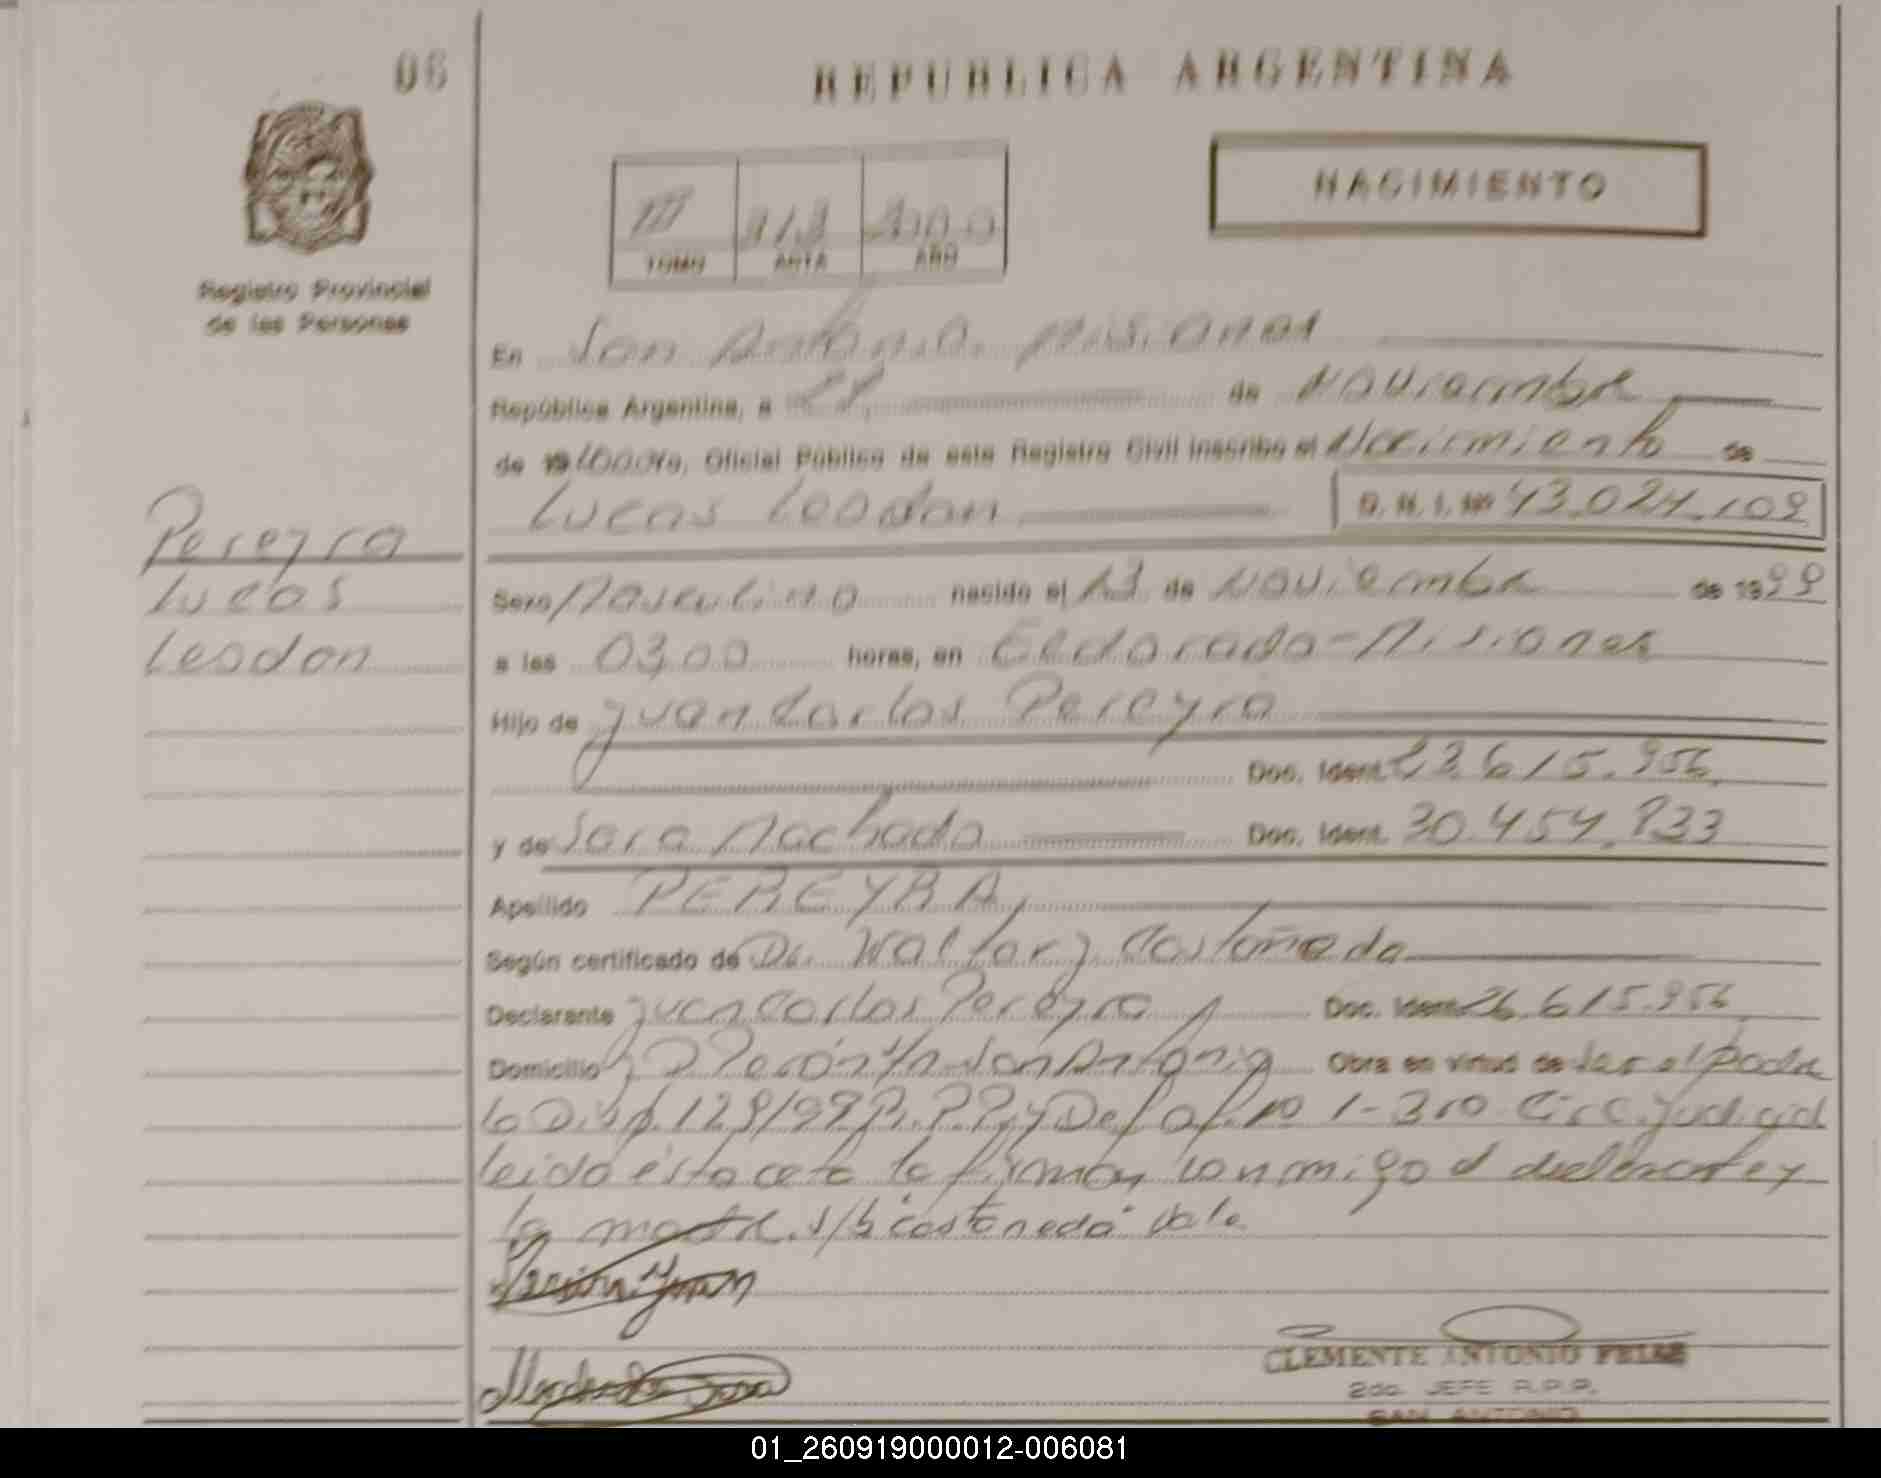 06
REPUBLICA ARGENTINA
NACIMIENTO
III
TOMO ACTA AÑO
Registro Provincial
de las Personas
En San Antonio Misiones
República Argentina, a de Noviembre
de 19 Oficial Público de este Registro Civil inscribo el Nacimiento de
Lucas Leodan D. N. I. Nº 43.024.109
Pereyra
Lucas
Leodan
Sexo Masculino nacido el 13 de Noviembre de 1999
a las 03,00 horas, en Eldorado-Misiones
Hijo de Juan Carlos Pereyra
Doc. Ident. 23.615.956
y de Sara Machado Doc. Ident. 30.454.933
Apellido PEREYRA
Según certificado de Dr. Walter J. Castañeda
Declarante Juan Carlos Pereyra Doc. Ident. 26.615.956
Domicilio J D Perón s/n San Antonio Obra en virtud de
la 129/99 R.P.P. y 1-3ra Circ. Judicial
leido esta acta la firman conmigo el declarante y
la madre. s/b "castaneda" vale.
CLEMENTE ANTONIO
2do. JEFE R.P.P.
SAN ANTONIO
01_260919000012-006081